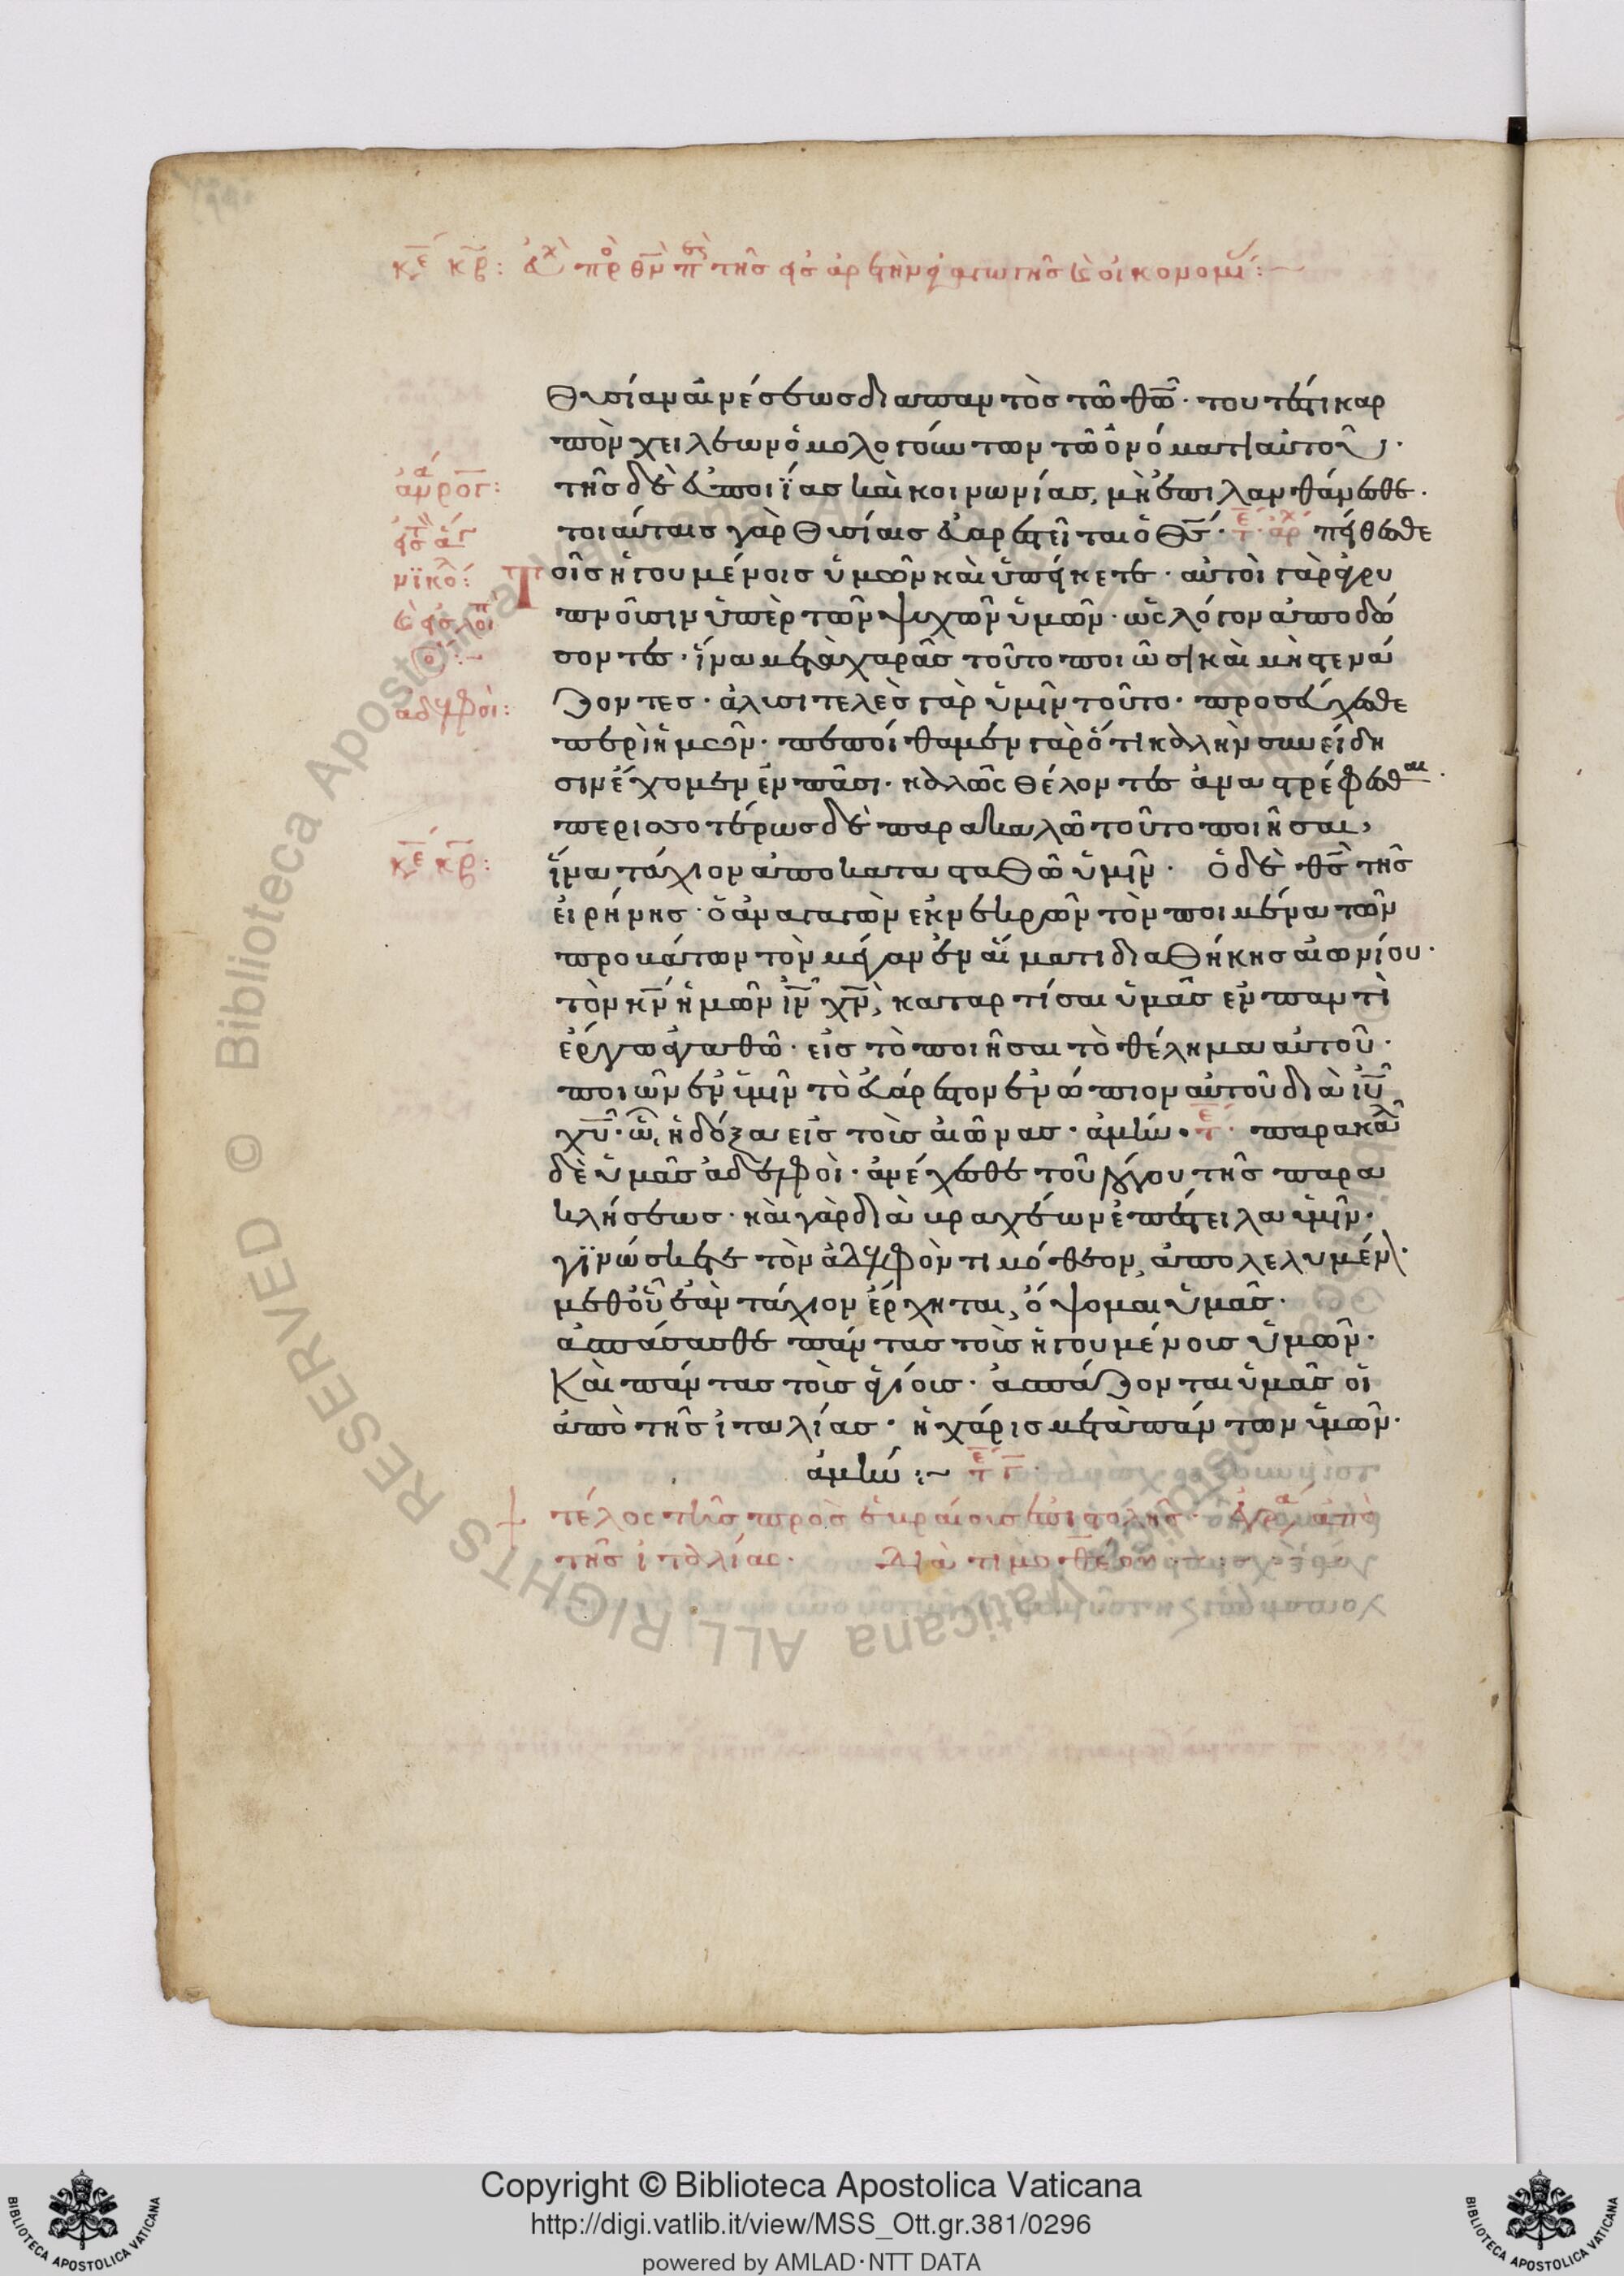 θυσίαν αἰνέσεως διαπαντὸς τῶ θῶ· τουτέστι καρ
πὸν χειλέων ὁμολογούντων τῶ ὀνόματι αὐτοῦ·
τῆς δὲ εὐποιΐας καὶ κοινωνίας, μὴ ἐπιλανθάνεσθε·
τοιαύταις γὰρ θυσίαις εὐαρεστεῖται ὁ θς· πείθεσθε
τοῖς ἡγουμένοις ὑμῶν καὶ ὑπείκετε· αὐτοὶ γὰρ ἀγρυ
πνοῦσιν ὑπὲρ τῶν ψυχῶν ὑμῶν· ὡς λόγον ἀποδώ
σοντες· ἵνα μετὰ χαρᾶς τοῦτο ποιῶσι καὶ μὴ στενά
ζοντες· ἀλυσιτελὲς γὰρ ὑμῖν τοῦτο· προσεύχεσθε
περὶ ἡμῶν· πεποίθαμεν γὰρ ὅτι καλὴν συνείδη
σιν ἔχομεν ἐν πᾶσι· καλῶς θέλοντες ἀναστρέφεσθαι·
περισσοτέρως δὲ παρακαλῶ τοῦτο ποιῆσαι,
κε κρ:
ἵνα τάχιον ἀποκατασταθῶ ὑμῖν· ὁ δὲ θς τῆς
εἰρήνης· ὁ ἀναγαγὼν ἐκ νεκρῶν τὸν ποιμένα τῶν
προβάτων τὸν μέγαν ἐν αἵματι διαθήκης αἰωνίου·
τὸν κν ἡμῶν ιν χν, καταρτίσαι ὑμᾶς ἐν παντὶ
ἔργω ἀγαθῶ· εἰς τὸ ποιῆσαι τὸ θέλημα αὐτοῦ·
ποιῶν ἐν ὑμῖν τὸ εὐάρεστον ἐνώπιον αὐτοῦ διὰ ιυ
χυ· ὧ ἡ δόξα εἰς τοὺς αἰῶνας· ἀμήν· παρακαλῶ
δὲ ὑμᾶς ἀδελφοὶ· ἀνέχεσθε τοῦ λόγου τῆς παρα
κλήσεως· καὶ γὰρ διὰ βραχέων ἐπέστειλα ὑμῖν·
γϊνώσκετε τὸν ἀδελφὸν τιμόθεον, ἀπολελυμένον·
μεθοῦ ἐὰν τάχιον ἔρχηται, ὄψομαι ὑμᾶς·
ἀσπάσασθε πάντας τοὺς ἡγουμένους ὑμῶν·
Καὶ πάντας τοὺς ἁγίους· ἀσπάζονται ὑμᾶς οἱ
ἀπὸ τῆς ἰταλίας· ἡ χάρις μετὰ πάντων ὑμῶν·
ἀμήν :~
τέλος τῆς πρὸς ἑβραίους ἐπιστολῆς· ἐγρά ἀπὸ
τῆς ἰταλίας· Διὰ τιμοθέου
Copyright © Biblioteca Apostolica Vaticana
http://digi.vatlib.it/view/MSS_Ott.gr.381/0296
powered by AMLAD·NTT DATA